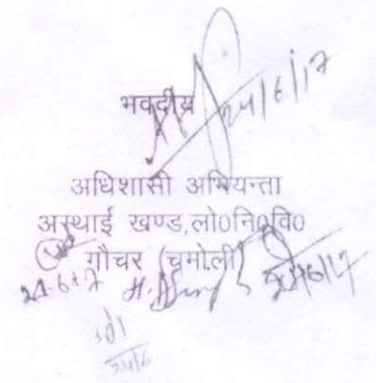 भवदीय
24/6/17
अधिशासी अभियन्ता
अस्थाई खण्ड,लो0नि0वि0
गौचर (चमोली)
24/6/17
24/6